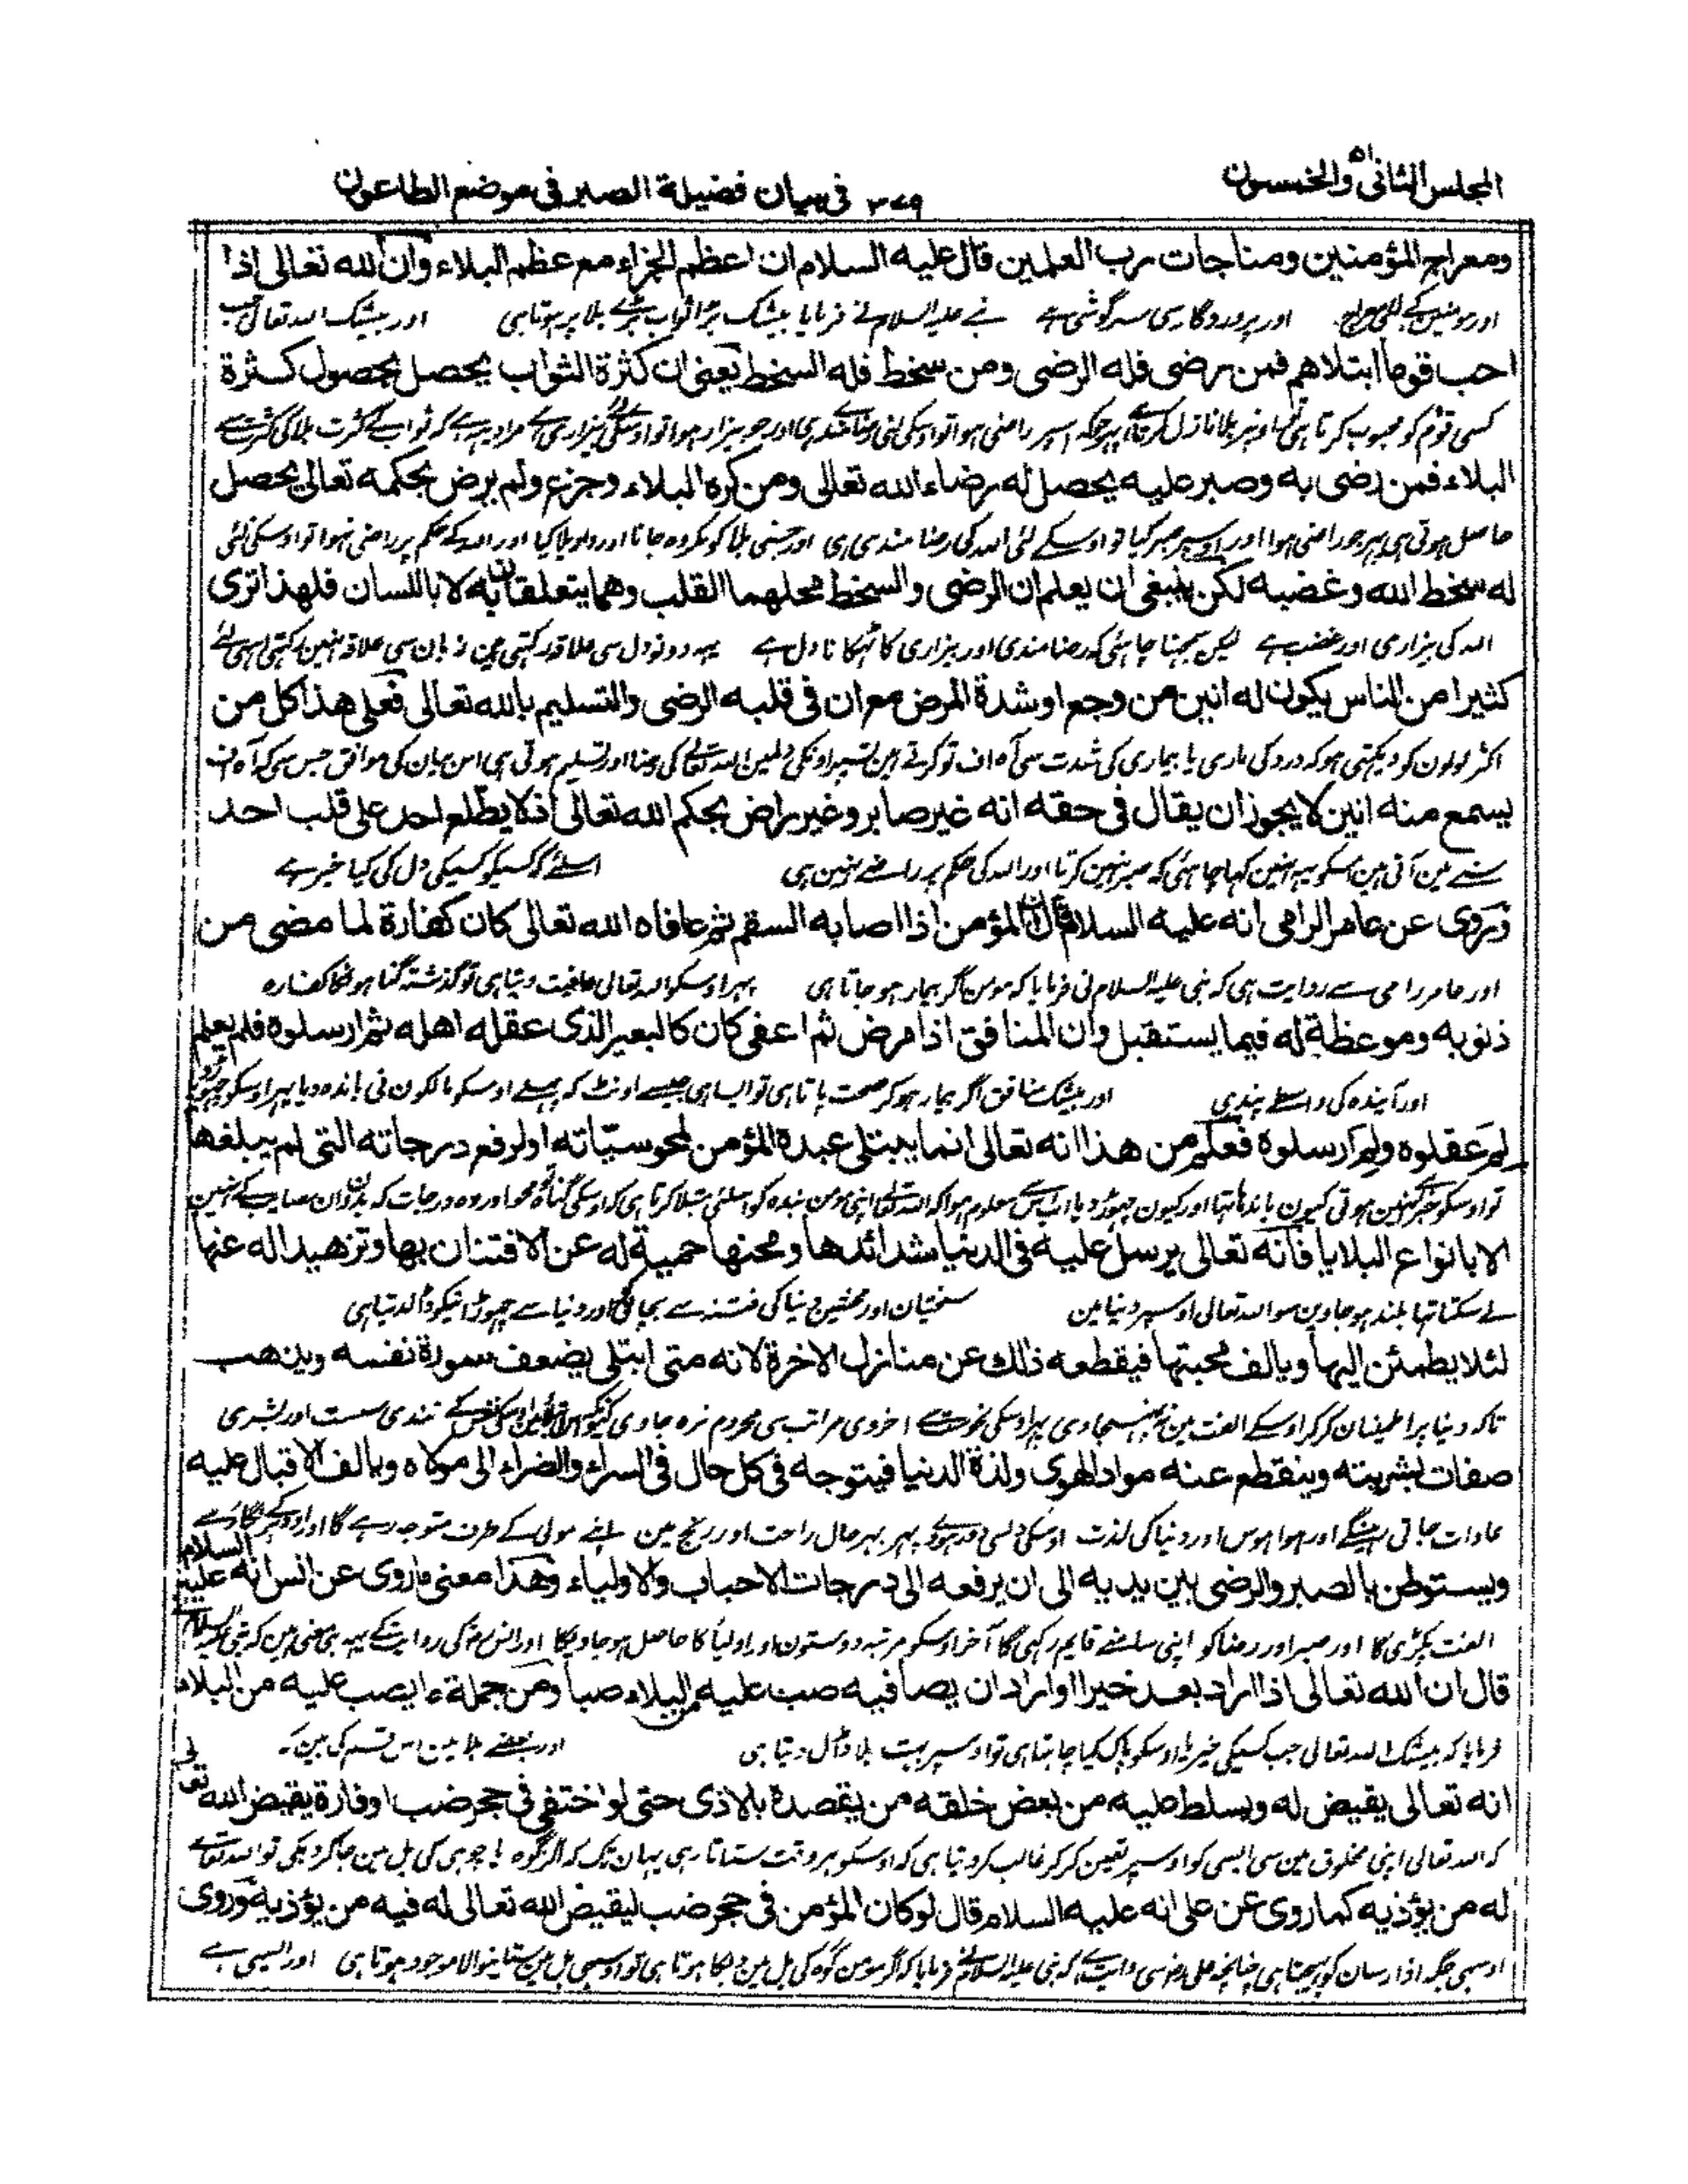 المجلس الثانى والخمسون
٣٧٩ فى بيان فضيلة الصبر فى موضع الطاعون
ومعراج المؤمنين ومناجات رب العلمين قال عليه السلام ان اعظم الجزاء مع عظم البلاء وان الله تعالى اذا
اور مومنين کے لئی معراج اور پروردگار سی سرگوشی ہے نبے علیہ السلام نے فرمایا بیشک بڑا ثواب بڑے بلا پر ہوتا ہی اور بیشک اللہ تعالی جب
احب قوما ابتلاهم فمن رضى فله الرضى ومن سخط فله السخط يعنى ان كثرة الثواب يحصل بحصول كثرة
کسی قوم کو محبوب کرتا ہی تو اونپر بلا نازل کرتا ہے پہر جو کہ اسپر راضی ہوا تو اوسکی لئی رضامندی ہی اور جو بیزار ہوا تو اوسکی لئی بیزاری ہے مراد یہہ ہے کہ ثواب کے کثرت بلا کی کثرت سے
البلاء فمن رضى به وصبر عليه يحصل له رضاء الله تعالى ومن كره البلاء وجزع ولم يرض بحكمه تعالى يحصل
حاصل ہوتی ہی پہر جو راضی ہوا اور اوسپر صبر کیا تو اوسکے لئی اللہ کی رضا مندی ہی اور جسنی بلا کو مکروہ جانا اور واویلا کیا اور اللہ کے حکم پر راضی نہوا تو اوسکی لئی
له سخط الله وغضبه لكن ينبغى ان يعلم ان الرضى والسخط محلهما القلب وهما يتعلقان به لا باللسان فلهذا ترى
اللہ کی بیزاری اور غضب ہے لیکن سمجہنا چاہئی کہ رضامندی اور بیزاری کا ٹہکانا دل ہے یہہ دونو دل سی علاقہ رکہتی ہین زبان سی علاقہ نہین رکہتی اسی لئے
كثيرا من الناس يكون له انين من وجع او شدة المرض مع ان فى قلبه الرضى والتسليم بالله تعالى فعلى هذا كل من
اکثر لوگون کو دیکہتی ہو کہ درد کی ماری یا بیماری کی شدت سی آہ اف تو کرتے ہین تسپر اونکی دلمین اللہ تعالے کی رضا اور تسلیم ہوتی ہی اس بیان کی موافق جس سی کہ آہ اف
يسمع منه انين لا يجوز ان يقال فى حقه انه غير صابر وغير راض بحكم الله تعالى اذ لا يطلع احد على قلب احد
سننے مین آئی ہین اسکو یہہ نہین کہا چاہئی کہ صبر نہین کرتا اور اللہ کی حکم پر راضے نہین ہی اسلئے کہ کسیکو کسیکی دل کی کیا خبر ہے
وروى عن عامر الرامى انه عليه السلام قال ان المؤمن اذا اصابه السقم ثم عافاه الله تعالى كان كفارة لما مضى من
اور عامر رامی سے روایت ہی کہ نبی علیہ السلام نی فرمایا کہ مومن اگر بیمار ہو جاتا ہی پہر اوسکو اللہ تعالی عافیت دیتا ہی تو گذشتہ گناہونکا کفارہ
ذنوبه وموعظة له فيما يستقبل وان المنافق اذا مرض ثم اعفى كان كالبعير الذى عقله اهله ثم ارسلوه فلم يعلم
اور آیندہ کی واسطے پند ہی اور بیشک منافق اگر بیمار ہو کر صحت پاتا ہی تو ایسا ہی جیسے اونٹ کہ پہلے اوسکو مالکون نی باندہ دیا پہر اوسکو چہوڑ دیا
لم عقلوه ولم ارسلوه فعلم من هذا انه تعالى انما يبتلى عبده المؤمن لمحو سيّاته او لرفع درجاته التى لم يبلغها
تو اوسکو خبر نہین ہوتی کیون باندہا تہا اور کیون چہوڑ دیا اس سے معلوم ہوا کہ اللہ تعالے اپنی مومن بندہ کو اسلئی مبتلا کرتا ہی کہ اوسکی گناہ محو اور وہ درجات کہ بدون ان مصایب کے نہین
الا بانواع البلايا فانه تعالى يرسل عليه فى الدنيا شدائدها ومحنها حمية له عن الافتنان بها وتزهيدا له عنها
لے سکتا تہا بلند ہو جاوین سو اللہ تعالی اوسپر دنیا مین سختیان اور محنتین دنیا کی فتنہ سے بچانیکو اور دنیا سے چہوڑانیکو ڈالدیتا ہی
لئلا يطمئن اليها ويالف محبتها فيقطعه ذلك عن منازل الاخرة لانه متى ابتلى يضعف سورة نفسه ويذهب
تاکہ دنیا پر اطمینان کر کر اوسکے الفت مین نہ پہنسجاوی پہر اوسکی اخروی مراتب سی محروم نرہ جاوی کیونکہ تندی سست اور بشری
صفات بشريته وينقطع عنه مواد الهوى ولذة الدنيا فيتوجه فى كل حال فى السراء والضراء الى مولاه ويالف الاقبال عليه
عادات جاتی رہینگے اور ہوا ہوس اور دنیا کی لذت اوسکی دور ہوکے پہر بہر حال راحت اور رنج مین اپنے مولی کے طرف متوجہ رہے گا
ويستوطن بالصبر والرضى بين يديه الى ان يرفعه الى درجات الاحباب والاولياء وهذا معنى ما روى عن انس انه عليه السلام
الفت پکڑیگا اور صبر اور رضا کو اپنی سامنے قایم رکہی گا آخر اوسکو مرتبہ دوستون اور اولیا کا حاصل ہو جاویگا اور انس رض کی روایت کے یہہ ہی معنی ہین کہ نبی علیہ السلام
قال ان الله تعالى اذا اراد بعبد خيرا او اراد ان يصافيه صب عليه من البلاء صبا ومن جملة ما يصب عليه من البلاء
فرمایا کہ بیشک اللہ تعالی جب کسیکی خیر یا اوسکو پاک کیا چاہتا ہی تو اوسپر بہت بلا ڈال دیتا ہی اور بعضے بلائین اس قسم کی ہین کہ
انه تعالى يقيض له ويسلط عليه من بعض خلقه من يقصده بالاذى حتى لو اختفى فى جحر ضب او فارة يقيض الله تعالى
کہ اللہ تعالی اپنی مخلوق مین سی ایسی کو اوسپر تعین کر کر غالب کر دیتا ہی کہ اوسکو ہر وقت ستاتا رہی یہان تک کہ اگر گوہ یا چوہی کی بل مین جا کر دبکی تو اللہ تعالے
له من يؤذيه كما روى عن على انه عليه السلام قال لو كان المؤمن فى جحر ضب ليقيض الله تعالى له فيه من يؤذيه وروى
اوسی جگہ ایذا رسان کو بہیجتا ہی چنانچہ علی رض سی روایت ہے کہ نبی علیہ السلام نے فرمایا کہ اگر مومن گوہ کی بل مین دبکا ہوتا ہی تو اوسی بل مین ستانیوالا موجود ہوتا ہی اور ایسی ہے